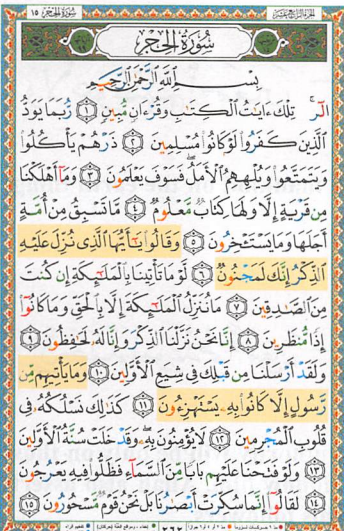 الجزء الرابع عشر
سورة الحجر ١٥
سُورَةُ الحِجْرِ
بِسْمِ اللَّهِ الرَّحْمَٰنِ الرَّحِيمِ
الٓر ۚ تِلْكَ ءَايَٰتُ الْكِتَٰبِ وَقُرْءَانٍ مُّبِينٍ ١ رُّبَمَا يَوَدُّ
الَّذِينَ كَفَرُوا۟ لَوْ كَانُوا۟ مُسْلِمِينَ ٢ ذَرْهُمْ يَأْكُلُوا۟
وَيَتَمَتَّعُوا۟ وَيُلْهِهِمُ الْأَمَلُ ۖ فَسَوْفَ يَعْلَمُونَ ٣ وَمَآ أَهْلَكْنَا
مِن قَرْيَةٍ إِلَّا وَلَهَا كِتَابٌ مَّعْلُومٌ ٤ مَّا تَسْبِقُ مِنْ أُمَّةٍ
أَجَلَهَا وَمَا يَسْتَـْٔخِرُونَ ٥ وَقَالُوا۟ يَٰٓأَيُّهَا الَّذِى نُزِّلَ عَلَيْهِ
الذِّكْرُ إِنَّكَ لَمَجْنُونٌ ٦ لَّوْ مَا تَأْتِينَا بِالْمَلَٰٓئِكَةِ إِن كُنتَ
مِنَ الصَّٰدِقِينَ ٧ مَا نُنَزِّلُ الْمَلَٰٓئِكَةَ إِلَّا بِالْحَقِّ وَمَا كَانُوٓا۟
إِذًا مُّنظَرِينَ ٨ إِنَّا نَحْنُ نَزَّلْنَا الذِّكْرَ وَإِنَّا لَهُۥ لَحَٰفِظُونَ ٩
وَلَقَدْ أَرْسَلْنَا مِن قَبْلِكَ فِى شِيَعِ الْأَوَّلِينَ ١٠ وَمَا يَأْتِيهِم مِّن
رَّسُولٍ إِلَّا كَانُوا۟ بِهِۦ يَسْتَهْزِءُونَ ١١ كَذَٰلِكَ نَسْلُكُهُۥ فِى
قُلُوبِ الْمُجْرِمِينَ ١٢ لَا يُؤْمِنُونَ بِهِۦ ۖ وَقَدْ خَلَتْ سُنَّةُ الْأَوَّلِينَ
١٣ وَلَوْ فَتَحْنَا عَلَيْهِم بَابًا مِّنَ السَّمَآءِ فَظَلُّوا۟ فِيهِ يَعْرُجُونَ
١٤ لَقَالُوٓا۟ إِنَّمَا سُكِّرَتْ أَبْصَٰرُنَا بَلْ نَحْنُ قَوْمٌ مَّسْحُورُونَ ١٥
٢٦٢